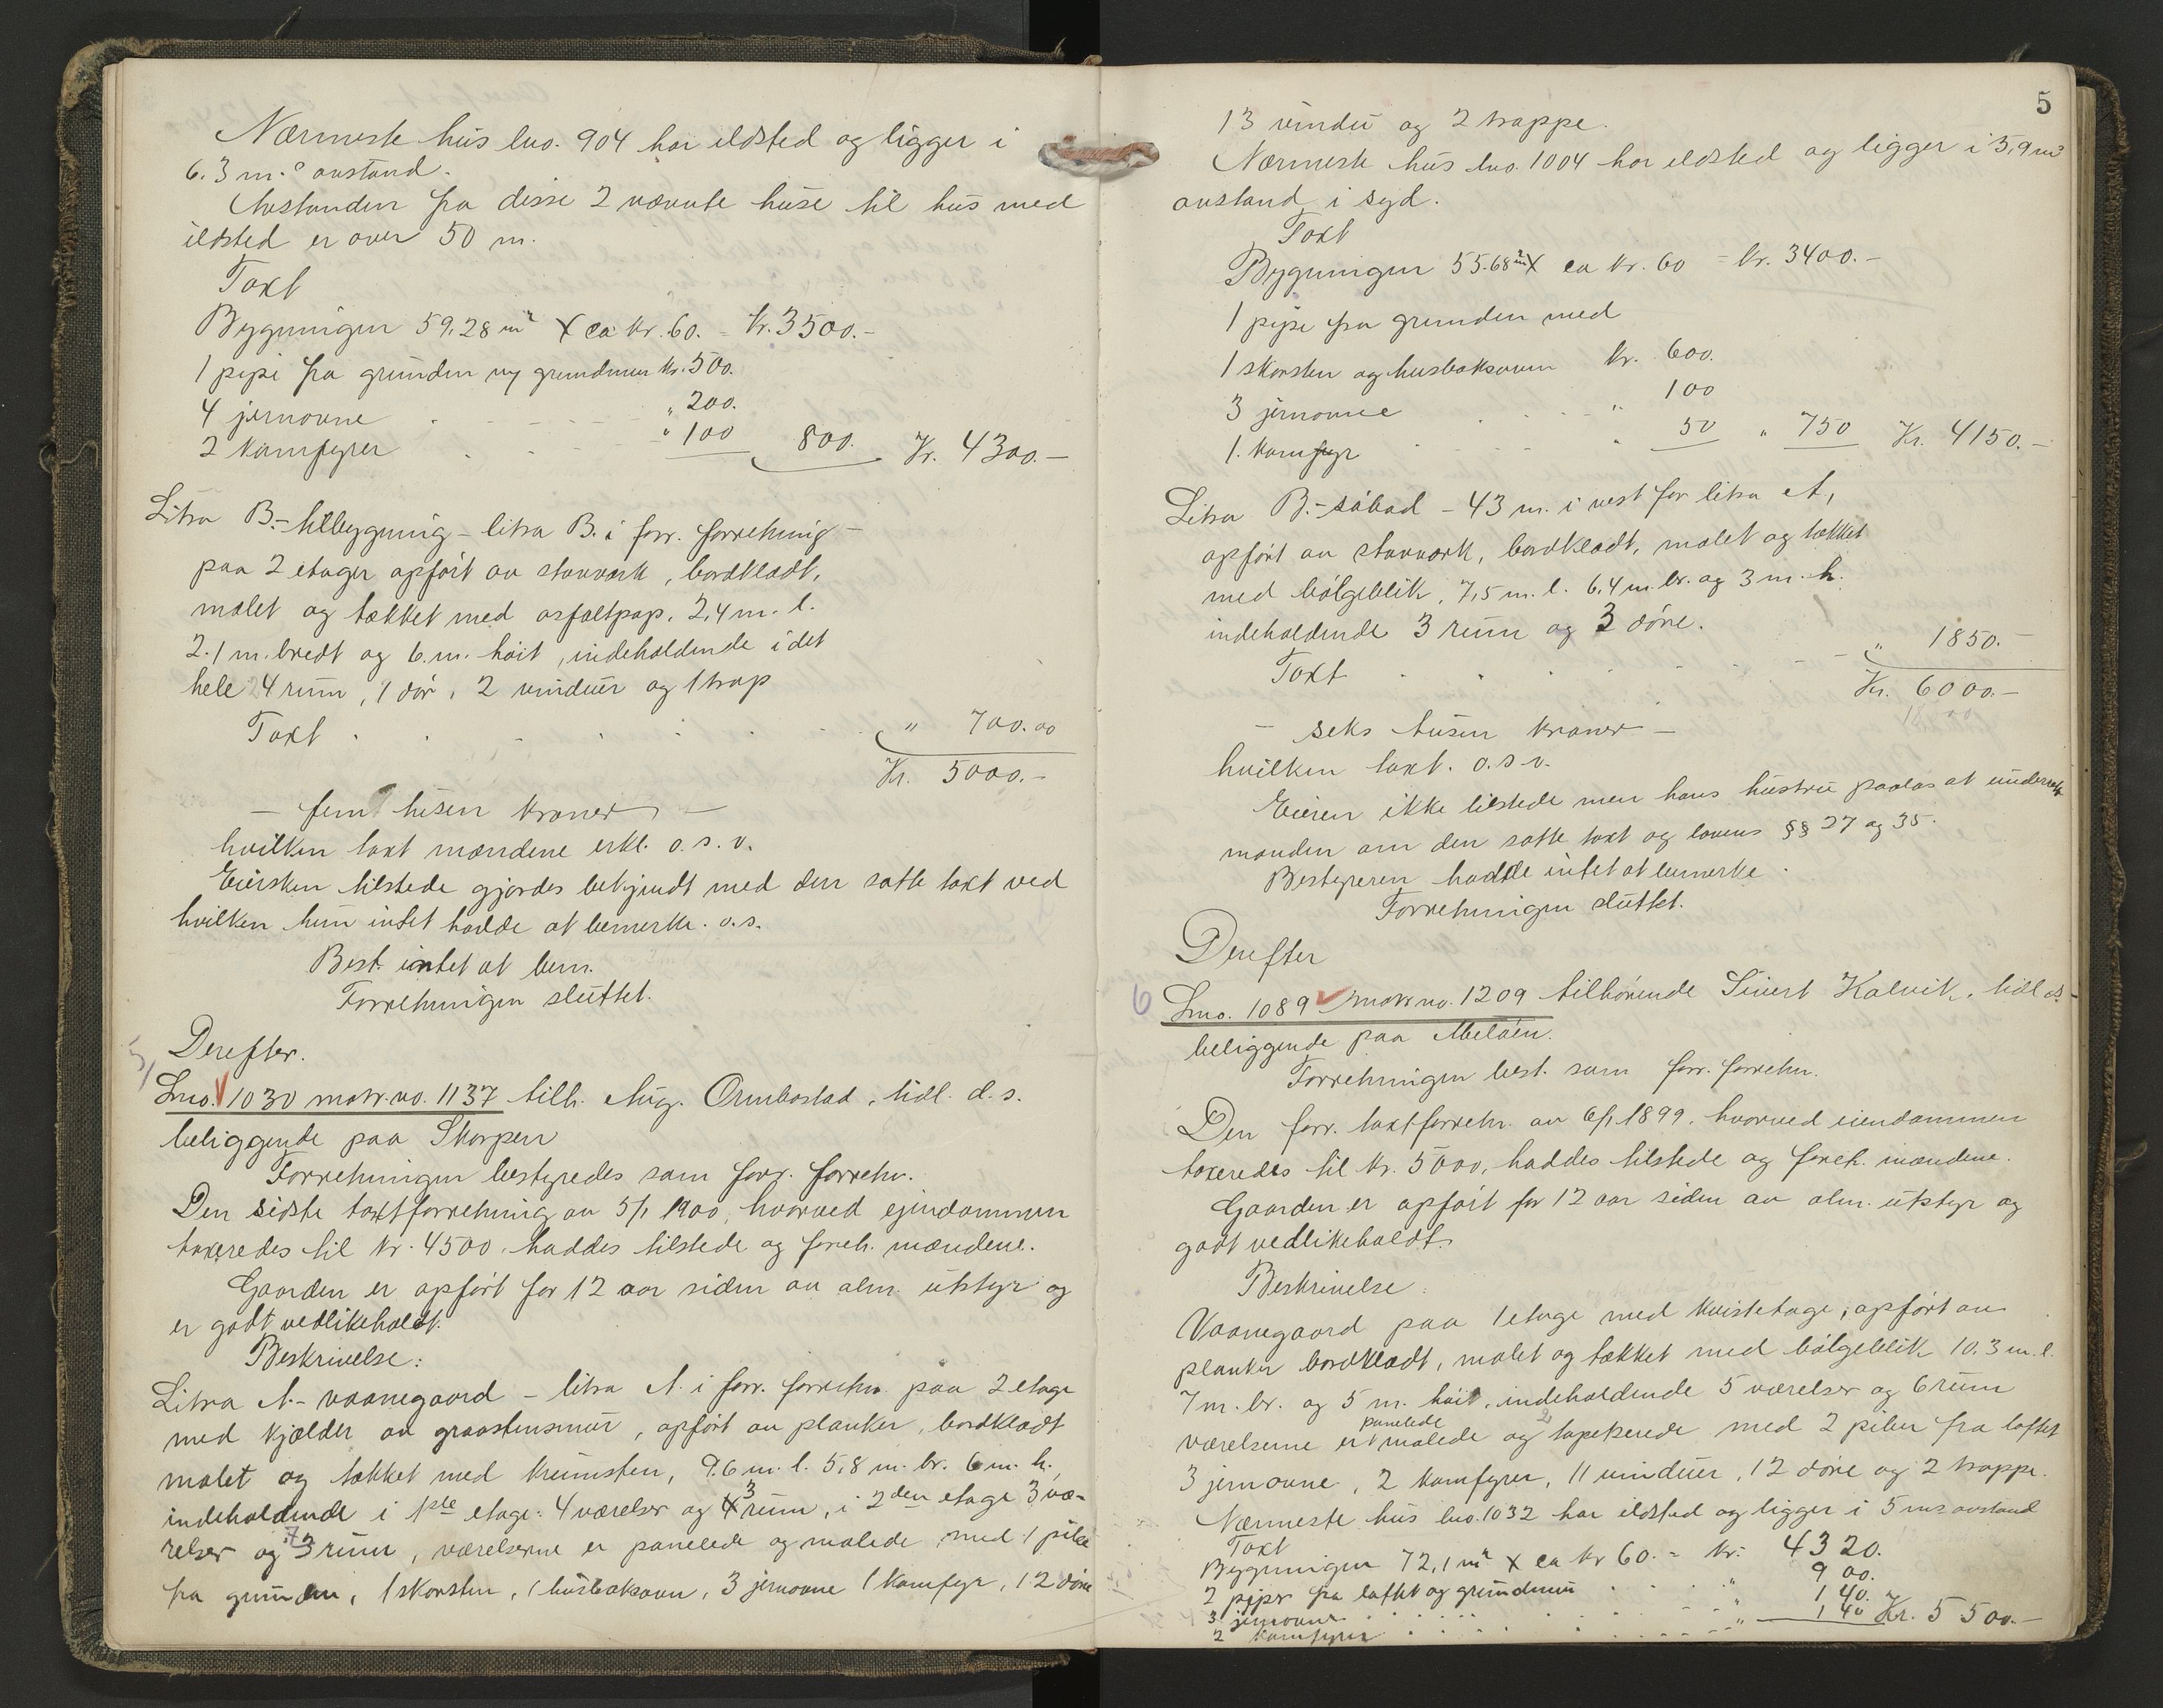 Nærmeste hus lno. 904 har ildsted og ligger i
6.3 m.s avstand.
Avstanden fra disse 2 nævnte huse til hus med
ildsted er over 50 m.
Taxt
Bygningen 59,28 m² X ca kr. 60. = kr. 3500.-
1 pipe fra grunden og grundmur kr. 500.
4 jernovne . - - - - " 200.
2 komfyrer . . - - - " 100 800. Kr. 4300.-
Litra B.- tilbygning - litra B. i forr. forretning -
paa 2 etager opført av stavverk, bordklædt,
malet og tækket med asfaltpap, 2,4 m. l.
2.1 m. bredt og 6. m. høit, indeholdende i det
hele 4 rum, 1 dør, 2 vinduer og 1 trap
Taxt . . . . . . . " 700.00
Kr. 5000.-
- fem tusen kroner -
hvilken taxt mændene erkl. o. s. v.
Eiersken tilstede gjordes bekjendt med den satte taxt ved
hvilken hun intet hadde at bemerke. o.s.
Best. intet at bem.
Forretningen sluttet.
5/ Derefter.
Lno. 1030 matr. no. 1137 tilh. Aug. Ormbostad, tidl. d. s.
beliggende paa Skorpen
Forretningen bestyredes som forr. forretn.
Den sidste taxtforretning av 5/1 1900, hvorved ejendommen
taxeredes til kr. 4500. haddes tilstede og foreh. mændene.
Gaarden er opført for 12 aar siden av alm. utstyr og
er godt vedlikeholdt.
Beskrivelse:
Litra A.- vaanegaard - litra A. i forr. forretn. paa 2 etage
med kjælder av graastensmur, opført av planker, bordklædt
malet og tækket med krumsten, 9.6 m. l. 5,8 m. br. 6 m. h.,
indeholdende i 1ste etage: 4 værelser og 3 rum, i 2den etage 3 væ-
relser og 3 rum, værelserne er panelede og malede med 1 pibe
fra grunden, 1 skorsten, 1 husbaksovn, 3 jernovne 1 komfyr, 12 døre
5
13 vindu og 2 trappe.
Nærmeste hus lno. 1004 har ildsted og ligger i 5,9 m.s
avstand i syd.
Taxt
Bygningen 55.68 m² X ca kr. 60 = kr. 3400.-
1 pipe fra grunden med
1 skorsten og husbaksovn kr. 600.
3 jernovne . - - - " 100
1. komfyr . - - - " 50 " 750 Kr. 4150.-
Litra B.- sjåbod - 43 m. i vest for litra A,
opført av stavverk, bordklædt, malet og tækket
med bølgeblik, 7,5 m. l. 6,4 m. br. og 3 m. h.
indeholdende 3 rum og 3 døre.
Taxt . . . . - - - - " 1850.-
Kr. 6000.-
- seks tusen kroner -
hvilken taxt. o. s. v.
Eieren ikke tilstede men hans hustru paalas at underrette
manden om den satte taxt og lovens §§ 27 og 35.
Bestyreren hadde intet at bemerke.
Forretningen sluttet.
Derefter
6 Lno. 1089 matr. no. 1209 tilhørende Sivert Kalvik, tidl. d. s.
beliggende paa Meløen.
Forretningen best. som forr. forretn.
Den forr. taxtforretn. av 6/1 1899. hvorved eiendommen
taxeredes til kr. 5000, haddes tilstede og foreh. mændene.
Gaarden er opført for 12 aar siden av alm. utstyr og
godt vedlikeholdt.
Beskrivelse:
Vaanegaard paa 1 etage med kvistetage, opført av
planker bordklædt, malet og tækket med bølgeblik 10.3 m. l.
7 m. br. og 5 m. høit, indeholdende 5 værelser og 6 rum
værelserne er panelede malede og 2 tapetserede med 2 piber fra loftet
3 jernovne, 2 komfyrer, 11 vinduer, 12 døre og 2 trappe.
Nærmeste hus lno. 1032 har ildsted og ligger i 5 m.s avstand
Taxt
Bygningen 72,1 m² X ca kr 60. = kr. 4320.
2 piper fra loftet og grundmur . . . " 900.
3 jernovne . . . . . " 140.
2 komfyrer . . . . . " 140 Kr. 5500.-